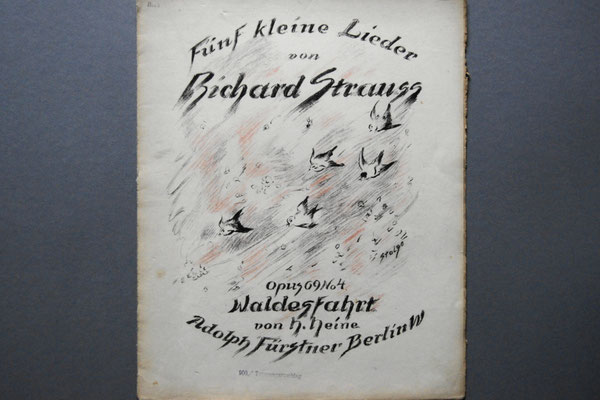 Fünf kleine Lieder
von
Richard Strauss
Opus 69 No 4
Waldesfahrt
von H. Heine
Adolph Fürstner Berlin W